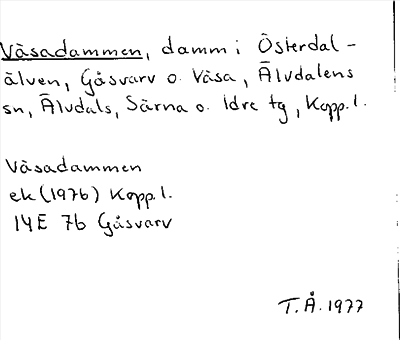 Våsadammen, damm i Österdal-
älven, Gåsvarv o. Våsa, Älvdalens
sn, Älvdals, Särna o. Idre tg, Kopp. l.
Våsadammen
ek (1976) Kopp. l.
14E 7b Gåsvarv
T.Å. 1977